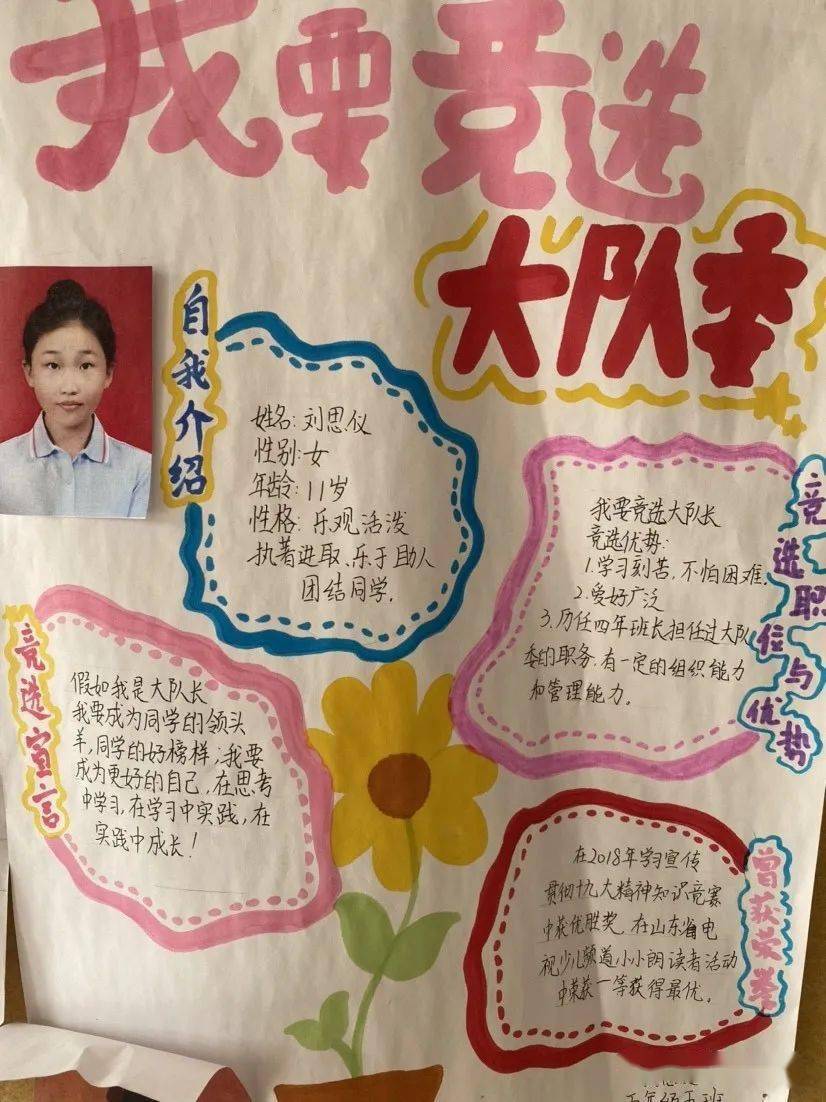 我要竞选
大队委
自我介绍
姓名:刘思仪
性别:女
年龄:11岁
性格:乐观活泼
执著进取、乐于助人
团结同学.
竞选职位与优势
我要竞选大队长
竞选优势:
1.学习刻苦,不怕困难.
2.爱好广泛
3.历任四年班长担任过大队
委的职务.有一定的组织能力
和管理能力.
竞选宣言
假如我是大队长
我要成为同学的领头
羊,同学的好榜样;我要
成为更好的自己,在思考
中学习,在学习中实践,在
实践中成长!
曾获荣誉
在2018年学习宣传
贯彻十九大精神知识竞赛
中获优胜奖.在山东省电
视少儿频道小小朗读者活动
中荣获一等获得最优.
五年级五班